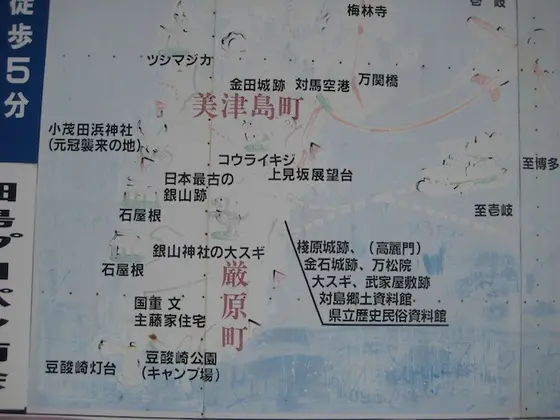 徒歩5分
梅林寺
壱岐
ツシマジカ
金田城跡
対馬空港
万関橋
美津島町
小茂田浜神社
(元冠襲来の地)
コウライキジ
上見坂展望台
至博多
日本最古の
銀山跡
至壱岐
石屋根
銀山神社の大スギ
石屋根
厳原町
棧原城跡、(高麗門)
金石城跡、万松院
大スギ、武家屋敷跡
対島郷土資料館
県立歴史民俗資料館
国重 文
主藤家住宅
豆酸崎灯台
豆酸崎公園
(キャンプ場)